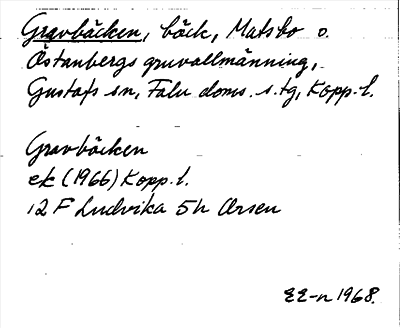 Gravbäcken, bäck, Matsbo o.
Östanbergs gruvallmänning,
Gustafs sn, Falu doms. s. tg, Kopp. l.
Gravbäcken
ek (1966) Kopp. l.
12 F Ludvika 5h Arsen
EE-n 1968.